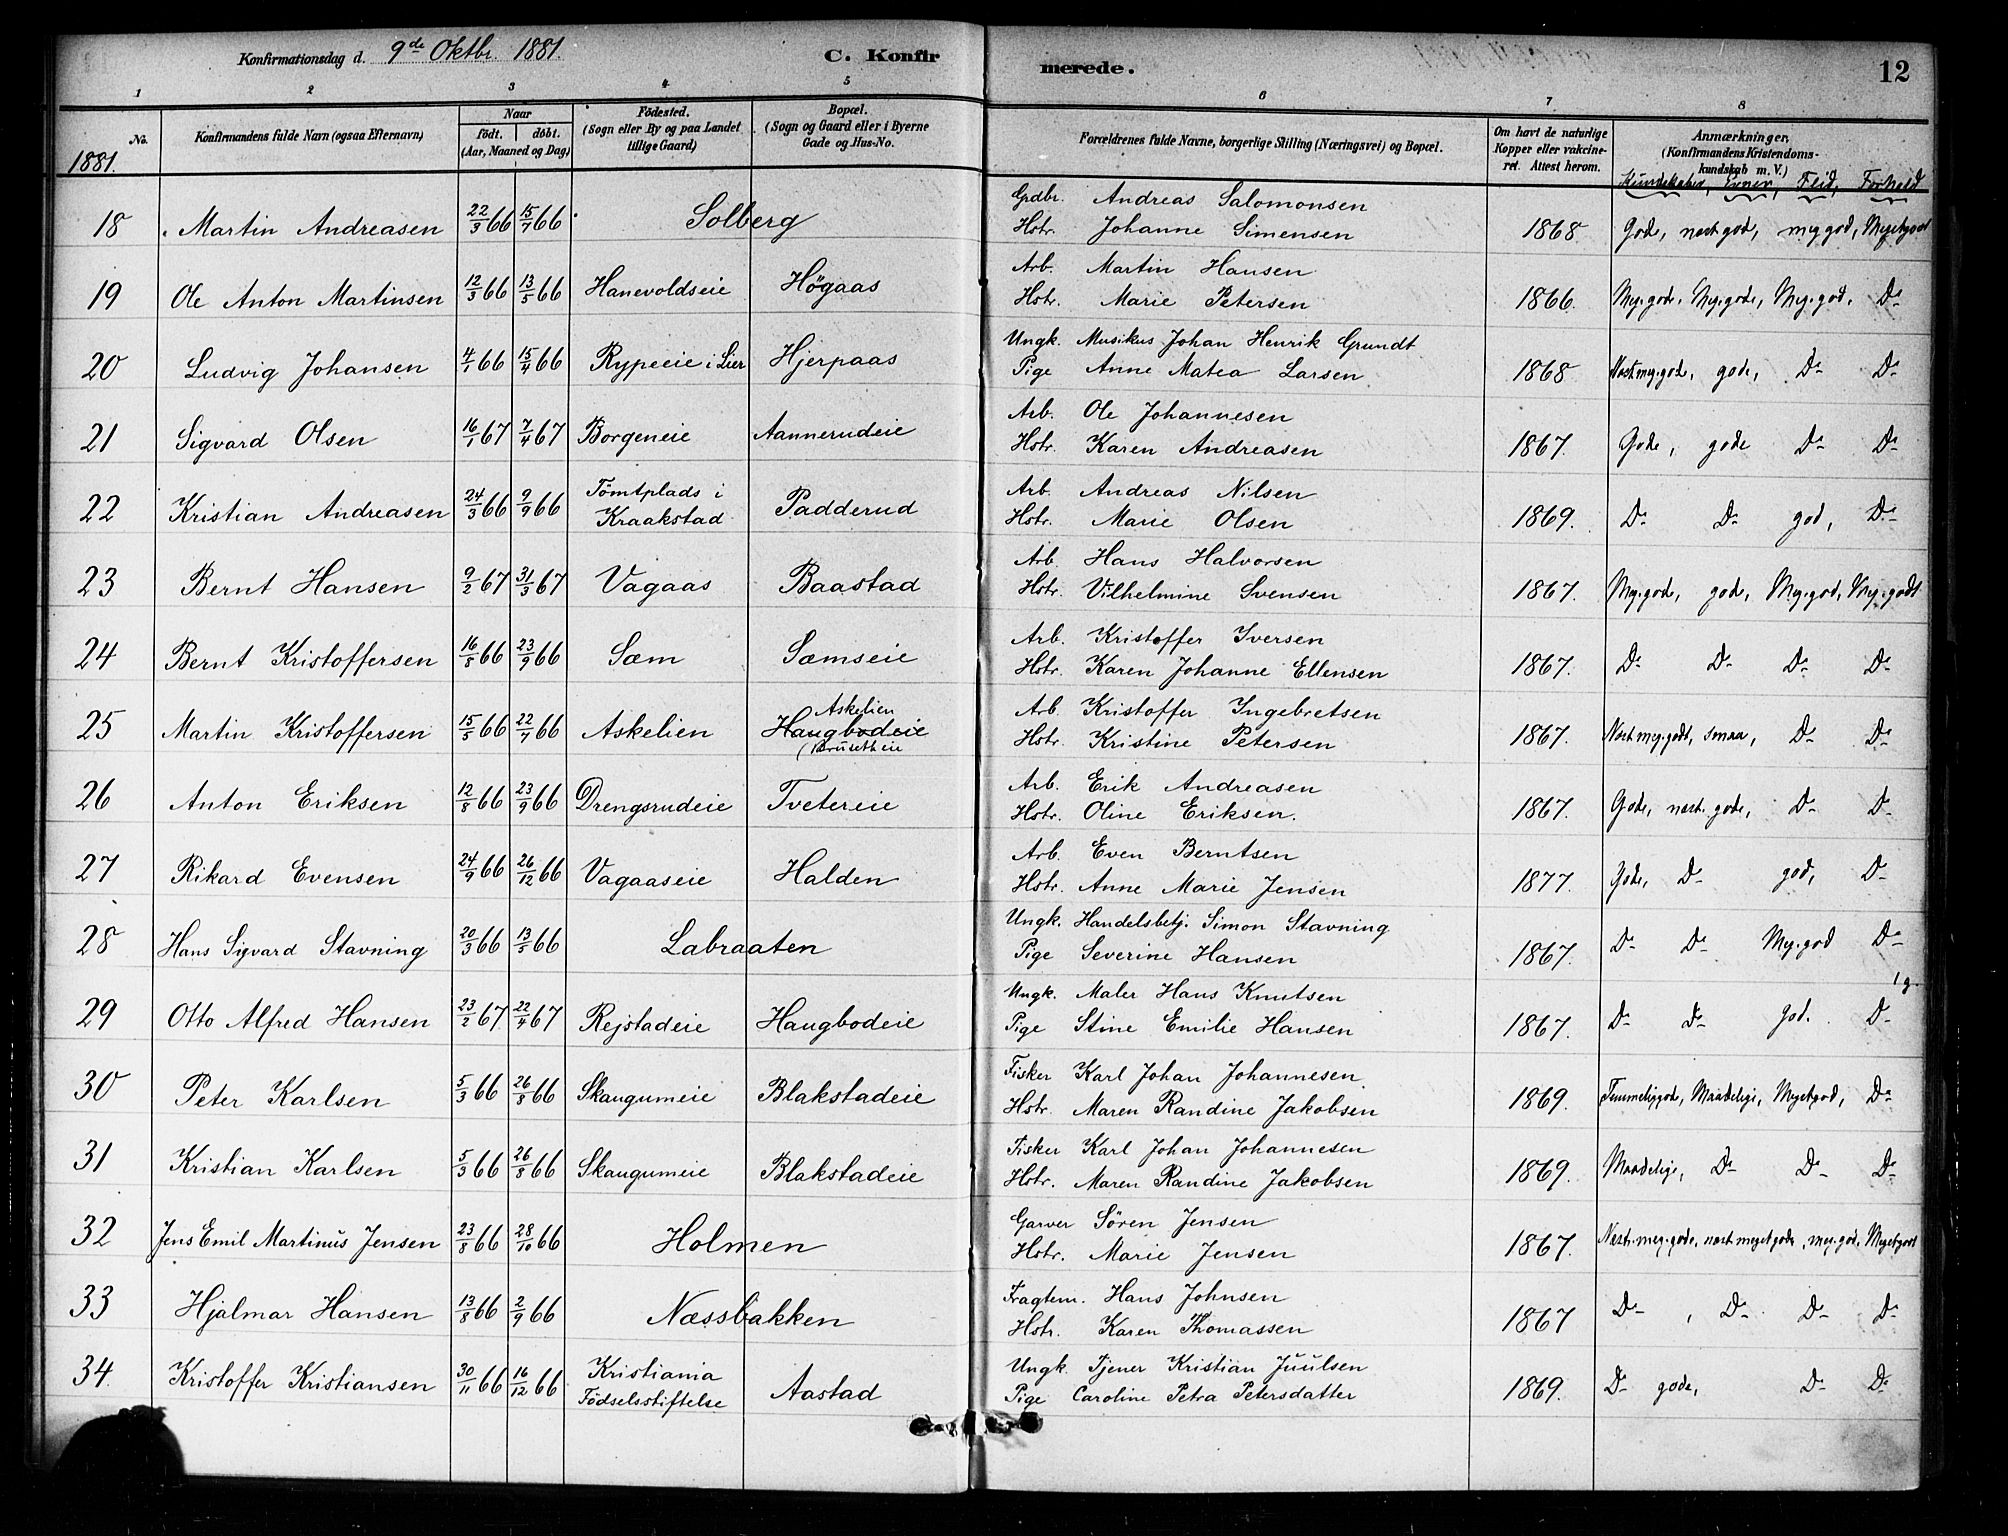 Konfirmationsdag d. 9de Oktbr. 1881.
C. Konfirmerede.
12
1 2 3 4 5 6 7 8
No.
Konfirmandens fulde Navn (ogsaa Efternavn)
Naar
født. døbt.
(Aar, Maaned og Dag)
Fødested.
(Sogn eller By og paa Landet
tillige Gaard)
Bopæl.
(Sogn og Gaard eller i Byerne
Gade og Hus-No.
Forældrenes fulde Navne, borgerlige Stilling (Næringsvei) og Bopæl.
Om havt de naturlige
Kopper eller vakcine-
ret. Attest herom.
Anmærkninger.
(Konfirmandens Kristendoms-
kundskab m. V.)
Kundskaber, Evner, Flid, Forhold
1881.
18 Martin Andreasen 22/3 66 15/7 66 Solberg Grdbr. Andreas Salomonsen
Hstr. Johanne Simensen 1868 Gode, næst god, myg god, Myget godt
19 Ole Anton Martinsen 12/3 66 13/5 66 Hanevoldseie Høgaas Arb. Martin Hansen
Hstr. Marie Petersen 1866. My. gode, My. gode, My. god. Do
20 Ludvig Johansen 4/1 66 15/4 66 Rypeeie i Lier Hjerpaas Ungk. Musikus Johan Henrik Grundt
Pige Anne Matea Larsen 1868 Næst my. gode, gode, Do Do
21 Sigvard Olsen 16/1 67 7/4 67 Borgeneie Aannerudeie Arb. Ole Johannesen
Hstr. Karen Andreasen 1867. Gode, gode Do Do
22 Kristian Andreasen 24/3 66 9/9 66 Tømtplads i Kraakstad Padderud Arb. Andreas Nilsen
Hstr. Marie Olsen 1869. Do Do god, Do
23 Bernt Hansen 9/2 67 31/3 67 Vagaas Baastad Arb. Hans Halvorsen
Hstr. Vilhelmine Svensen 1867. My. gode, gode, My. god, My. godt
24 Bernt Kristoffersen 16/8 66 23/9 66 Sæm Sæmseie Arb. Kristoffer Iversen
Hstr. Karen Johanne Ellensen 1867. Do Do Do Do
25 Martin Kristoffersen 15/5 66 22/7 66 Askelien Askelien Haugbodeie (Brusetheie Arb. Kristoffer Ingebretsen
Hstr. Kristine Petersen 1867. Næst my. godt, smaa, Do Do
26 Anton Eriksen 12/8 66 23/9 66 Drengsrudeie Tvetereie Arb. Erik Andreasen
Hstr. Oline Eriksen. 1867. Gode, næst. gode, Do Do
27 Rikard Evensen 24/9 66 26/12 66 Vagaaseie Halden Arb. Even Berntsen
Hstr. Anne Marie Jensen 1877. Gode, Do god, Do
28 Hans Sigvard Stavning 20/3 66 13/5 66 Labraaten Ungk. Handelsbetj. Simon Stavning
Pige Severine Hansen 1867. Do Do My. god Do
29 Otto Alfred Hansen 23/2 67 22/4 67 Rejstadeie Haugbodeie Ungk. Maler Hans Knutsen
Pige Stine Emilie Hansen 1867. Do Do god. Do
30 Peter Karlsen 5/3 66 26/8 66 Skaugumeie Blakstadeie Fisker Karl Johan Johannesen
Hstr. Maren Randine Jakobsen 1869. Temmelig gode, Maadelige, Myget god, Do
31 Kristian Karlsen 5/3 66 26/8 66 Skaugumeie Blakstadeie Fisker Karl Johan Johannesen
Hstr. Maren Randine Jakobsen 1869. Maadelige, Do Do Do
32 Jens Emil Martinus Jensen 23/8 66 28/10 66 Holmen Garver Søren Jensen
Hstr. Marie Jensen 1867. Næst. meg. gode, næst meget gode, my. god, Myget godt
33 Hjalmar Hansen 13/8 66 2/9 66 Næssbakken Fragtem. Hans Johnsen
Hstr. Karen Thomassen 1867 Do, Do Do Do
34. Kristoffer Kristiansen 30/11 66 16/12 66 Kristiania Fødselsstiftelse Aastad Ungk. Tjener Kristian Juulsen
Pige Caroline Petra Petersdatter 1869. Do gode, Do Do